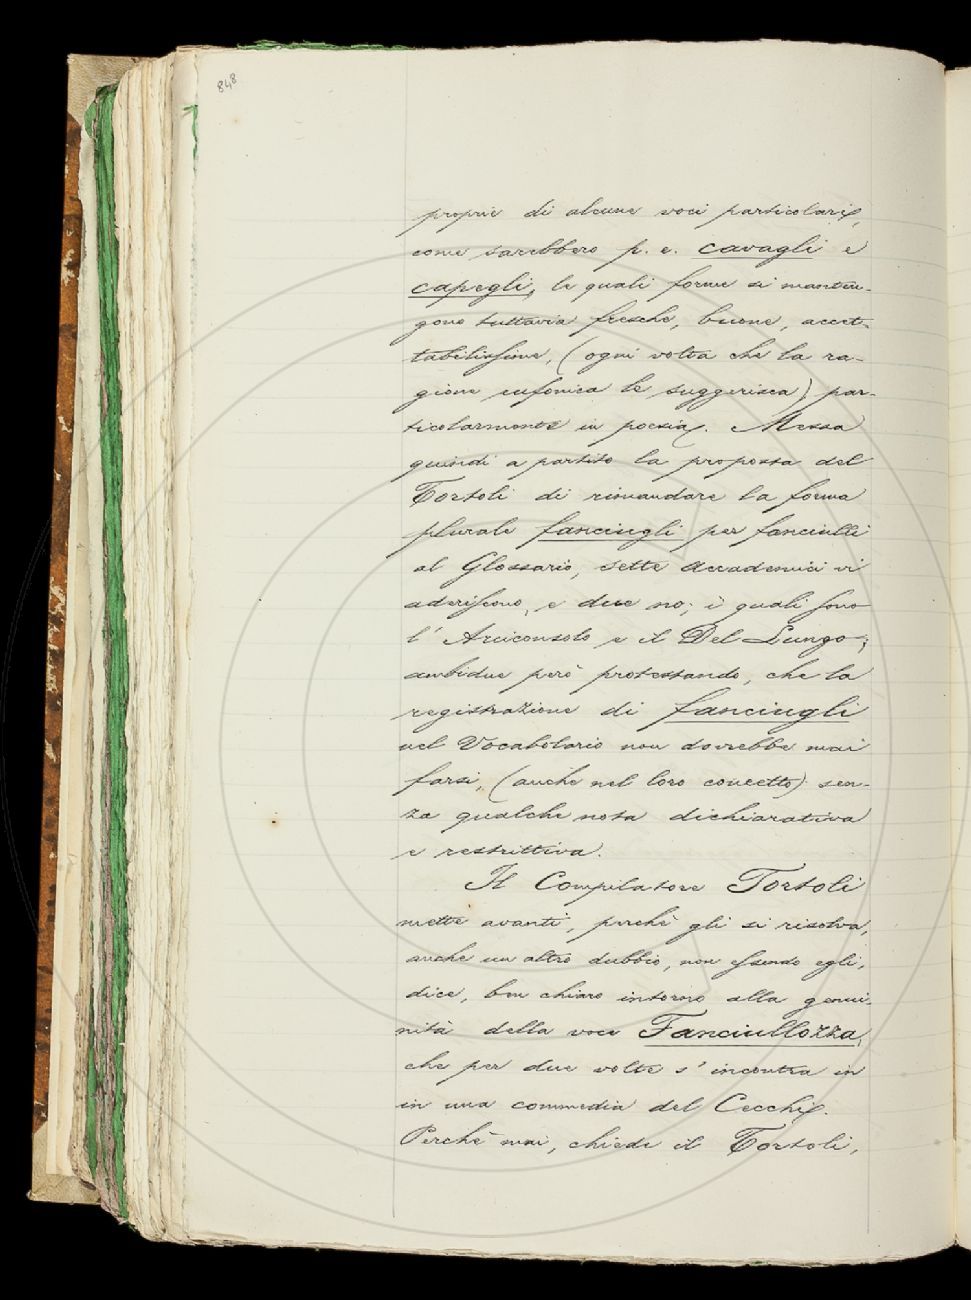 848
proprie di alcune voci particolari,
come sarebbero p. e. cavagli e
capegli, le quali forme si manten-
gono tuttavia fresche, buone, accet-
tabilissime, (ogni volta che la ra-
gione eufonica le suggerisca) par-
ticolarmente in poesia. Messa
quindi a partito la proposta del
Tortoli di rimandare la forma
plurale fanciugli per fanciulli
al Glossario, sette Accademici vi
aderiscono, e due no; i quali sono
l'Arciconsolo e il Del Lungo;
ambidue però protestando, che la
registrazione di fanciugli
nel Vocabolario non dovrebbe mai
farsi, (anche nel loro concetto) sen-
za qualche nota dichiarativa
e restrittiva.
Il Compilatore Tortoli
mette avanti, perchè gli si risolva,
anche un altro dubbio, non essendo egli,
dice, ben chiaro intorno alla genui-
nità della voce Fanciullozza,
che per due volte s'incontra in
in una commedia del Cecchi.
Perchè mai, chiede il Tortoli,